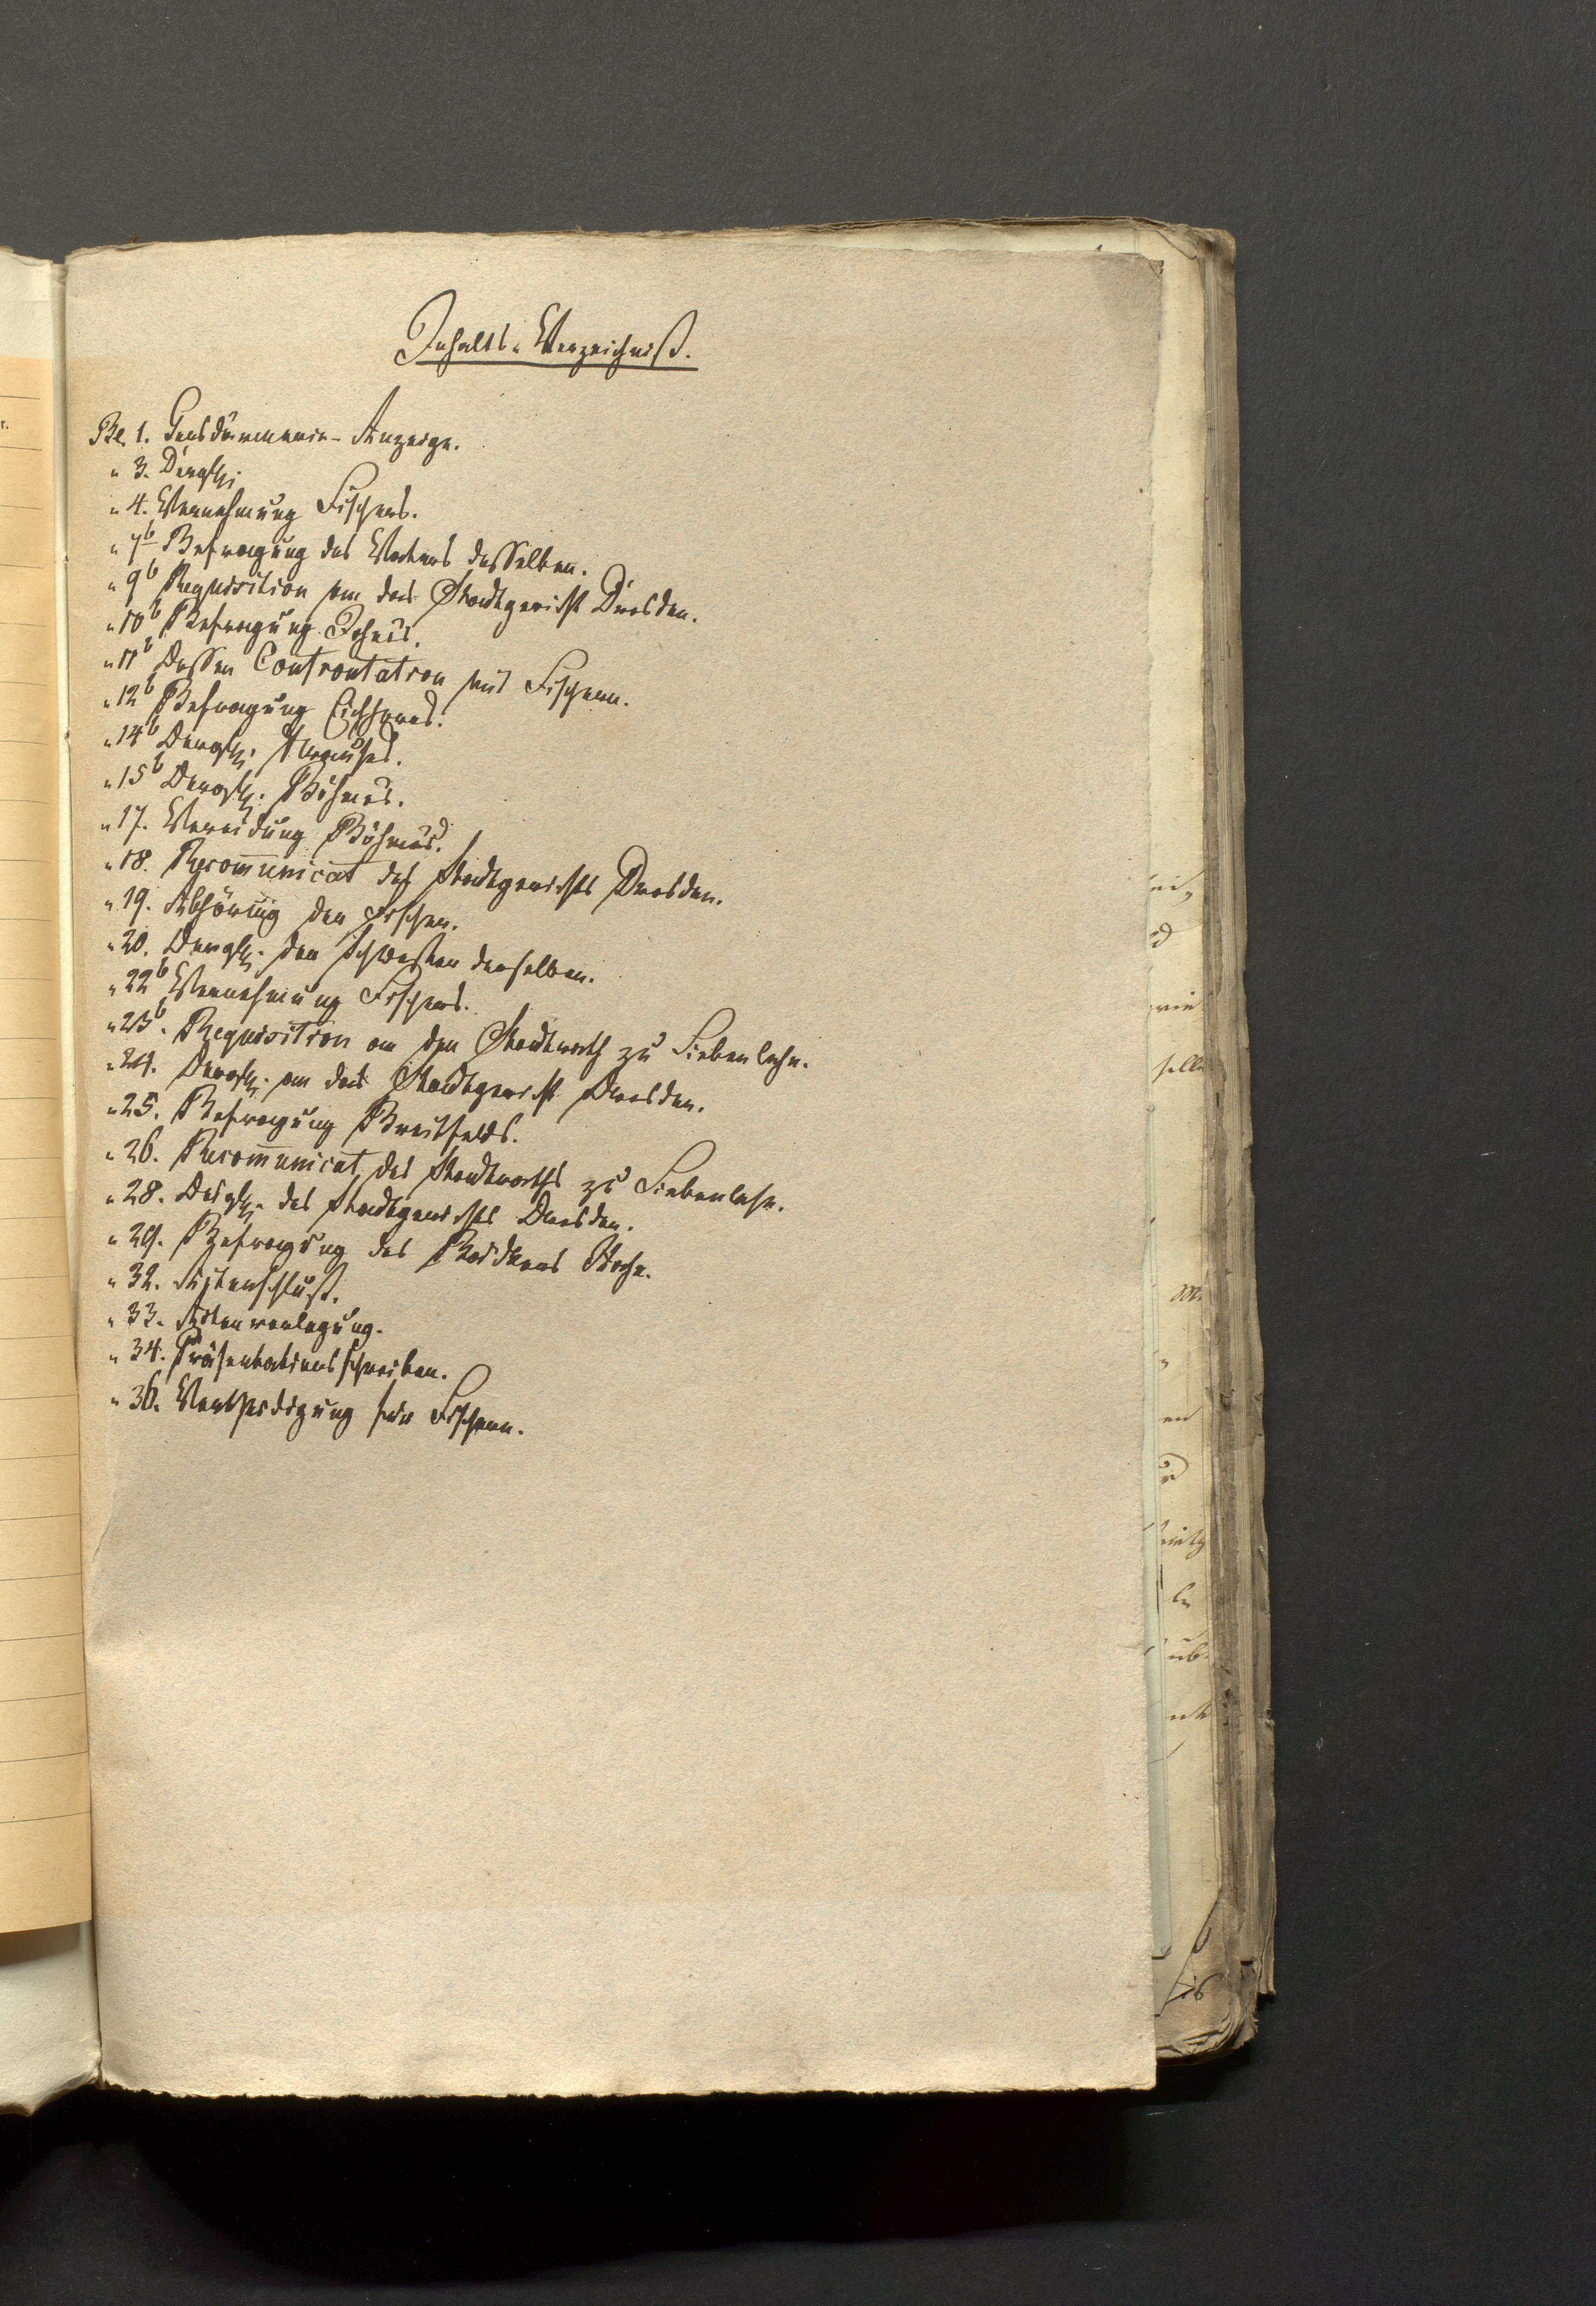 Inhalts-Verzeichniß.
Bl. 1. Gensdarmerie-Anzeige.
" 3. Dergl.
" 4. Vernehmung Fischers.
" 7b Befragung des Vaters desselben.
" 9b Requisition an das Stadtgericht Dresden.
" 10b Befragung
" 11b Dessen Confrontation mit Fischern.
" 12b Befragung
" 14b Dergl. Krauses.
" 15b Dergl. Böhme's.
" 17. Vereidung Böhme's.
" 18. Recom̅unicat des Stadtgerichts Dresden.
" 19. Abhörung der Fischer.
" 20. Dergl. der Schwester derselben.
" 22b Vernehmung Fischers.
" 23b. Requisition an den Stadtrath zu Siebenlehn.
" 24. Dergl. an das Stadtgericht Dresden.
" 25. Befragung Breitfelds.
" 26. Recom̅unicat des Stadtraths zu Siebenlehn.
" 28. Desgl. des Stadtgerichts Dresden.
" 29. Befragung des
" 32. Aktenschluß.
" 33. Aktenvorlegung.
" 34. Präsentationsschreiben.
" 36. Vertheidigung für Fischern.